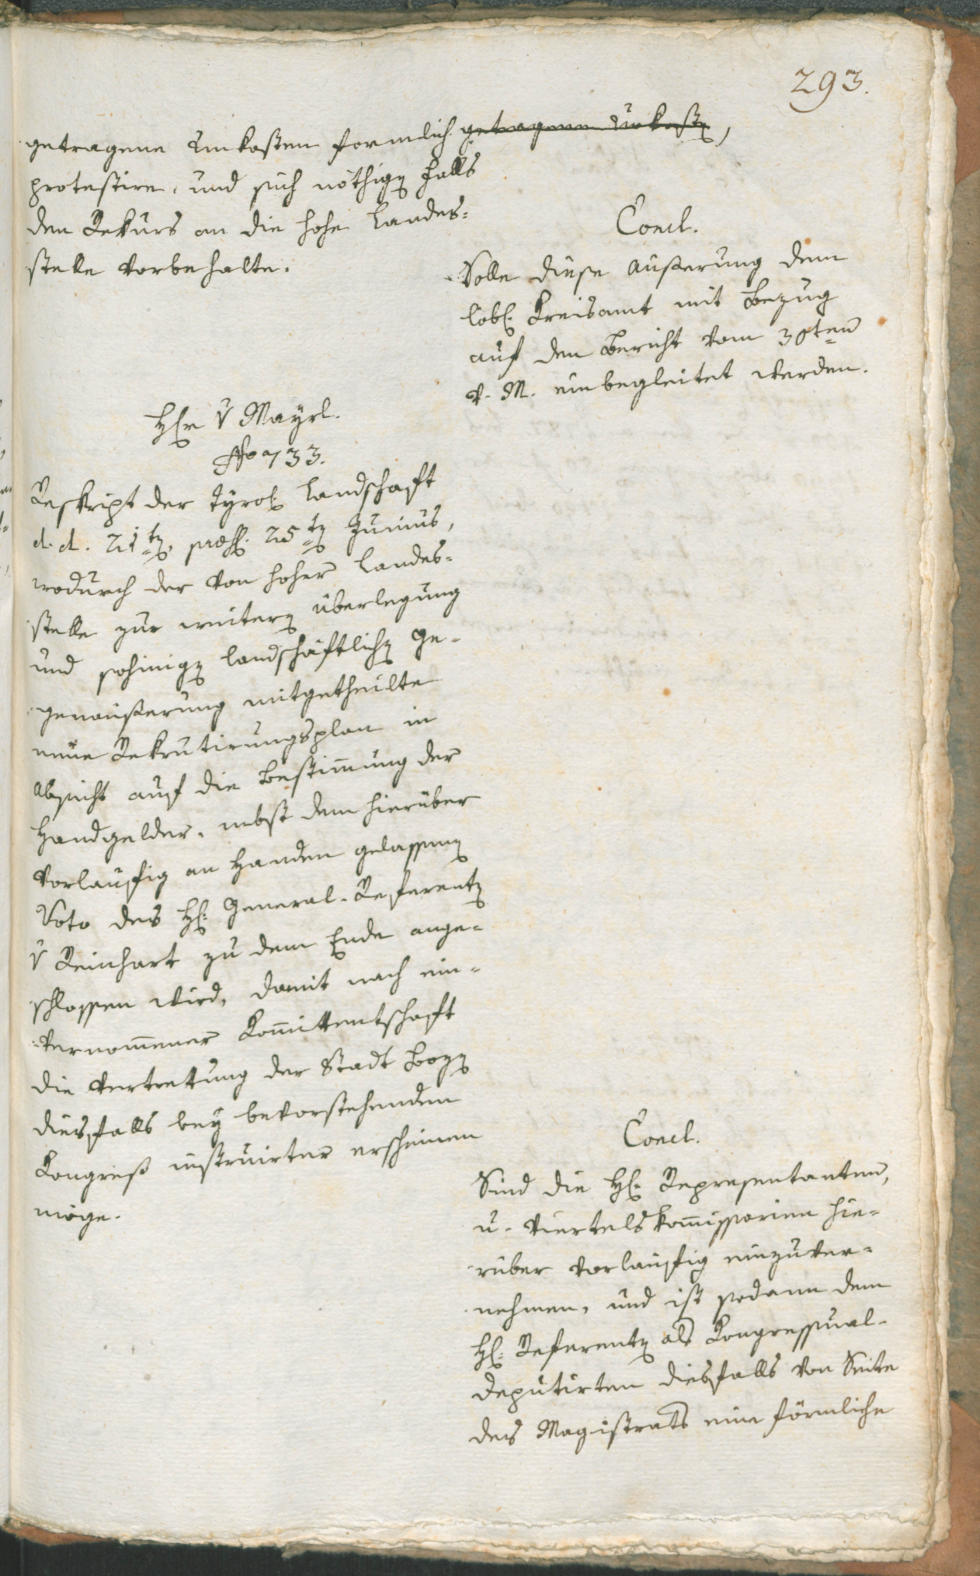 293.
getragene Unkosten formlich getragene Unkosten,
protestire, und sich nöthigen falls
den Rekurs an die hohe Landes-
stelle vorbehalte.
Concl.
Solle diese Äußerung dem
löbl. Kreisamt mit Bezug
auf den Bericht vom 30ten
v. M. einbegleitet werden.
Hr. v Mayrl.
No 733.
Reskript der Tyrol. Landschaft
d. d. 21ten, præs. 25ten Junius,
wodurch der von hoher Landes-
stelle zur weitern überlegung
und sohinigen landschäftlichen Ge-
genäußerung mitgetheilte
neue Rekrutirungsplan in
Absicht auf die Bestimmung der
Handgelder, nebst dem hierüber
vorlaufig an Handen gelassenen
Voto des H. General-Referenten
v Reinhart zu dem Ende ange-
schlossen wird, damit nach ein-
vernommener Kommittentschaft
die Vertretung der Stadt Bozen
diesfalls bey bevorstehendem
Kongreß instruirter erscheinen
möge.
Concl.
Sind die H. Representanten,
u. Viertelskommissarien hie-
rüber vorläufig einzuver-
nehmen, und ist sodann dem
H. Referenten als Kongressual-
deputirten diesfalls von Seite
des Magistrats eine förmliche